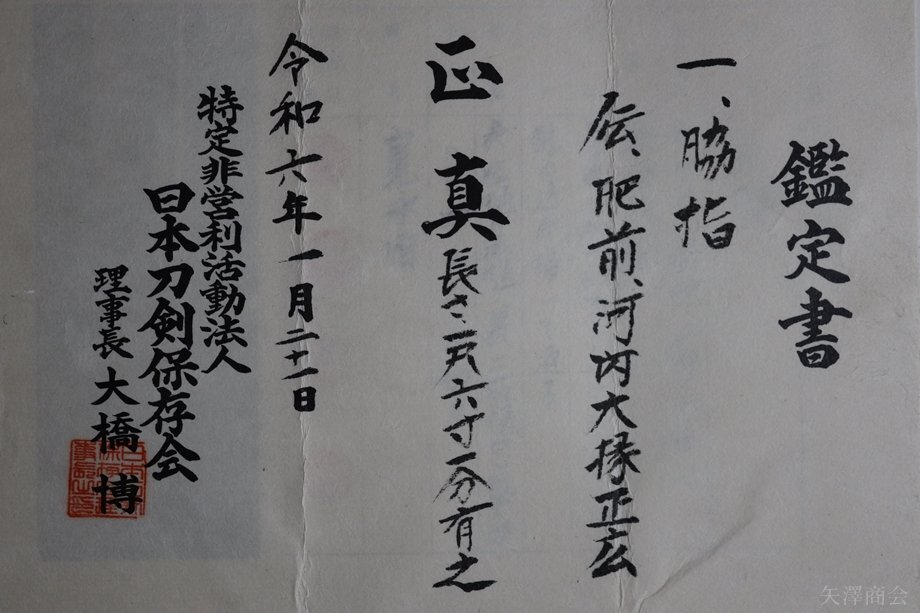 鑑定書
一、脇指
伝、肥前、河内大掾正広
正真 長さ一尺六寸一分有之
令和六年一月二十一日
特定非営利活動法人
日本刀剣保存会
理事長 大橋 博
矢澤商会